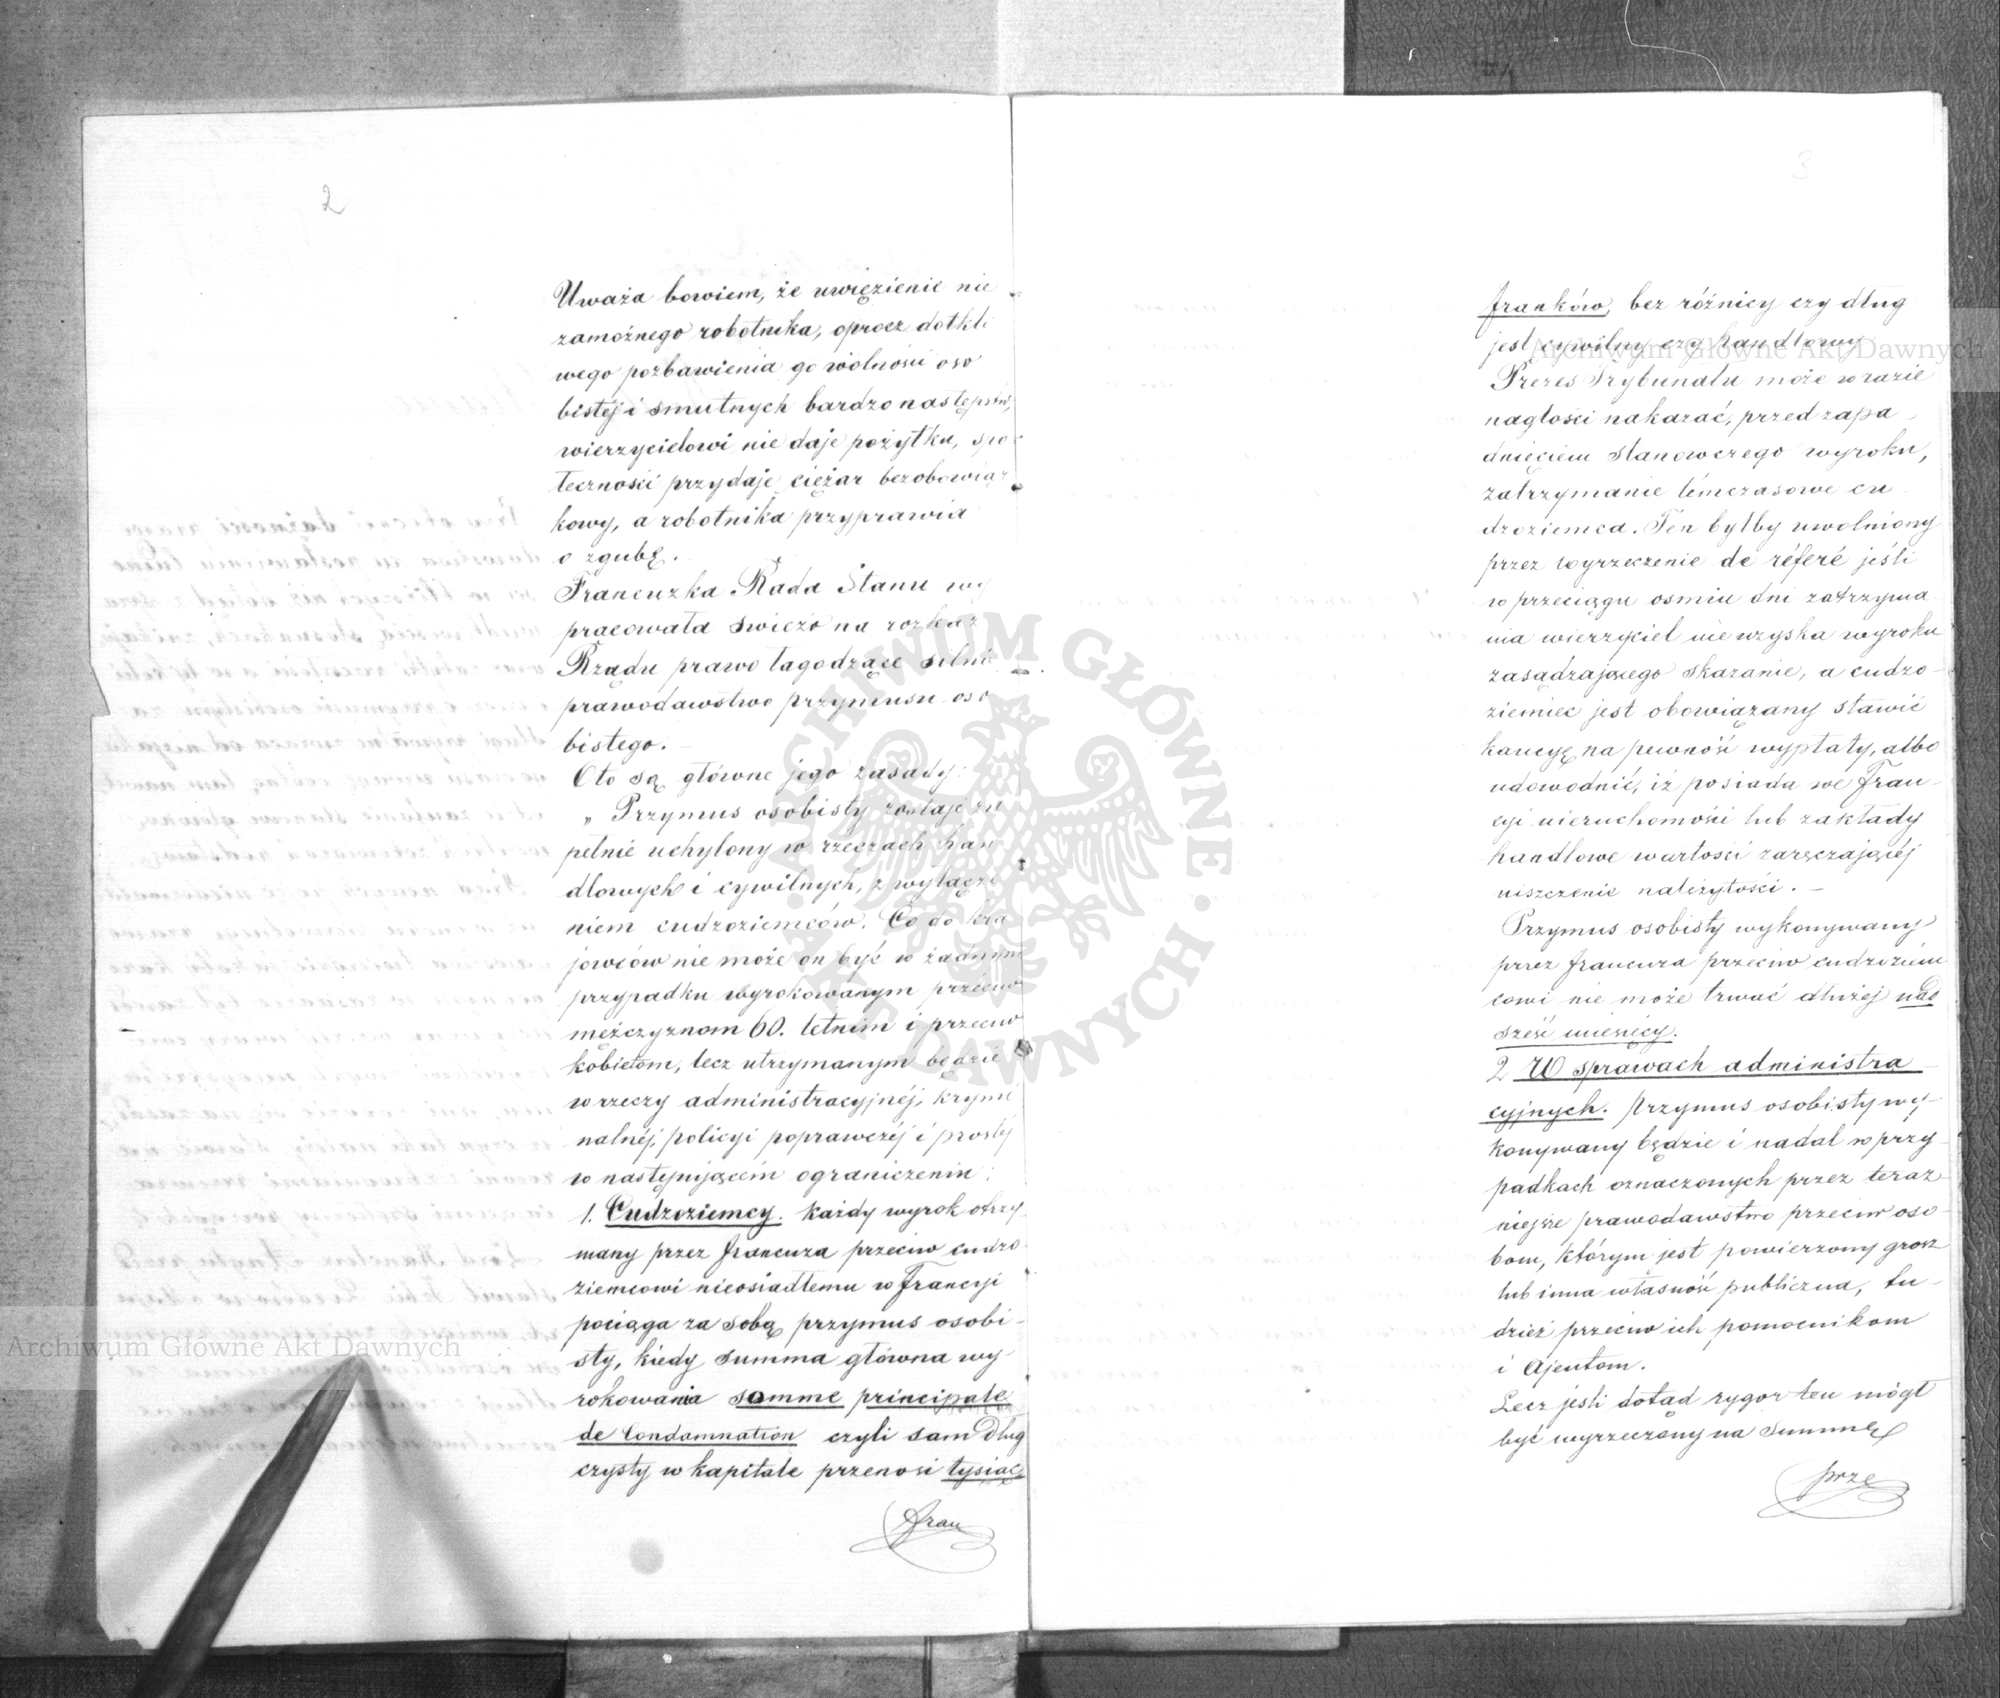 2
Uważa bowiem, że uwięzienie nie
zamożnego robotnika, oprocz dotkli
wego pozbawienia go wolności oso
bistej i smutnych bardzo następstw,
wierzycielowi nie daje pożytku, spo
łeczności przydaje ciężar bezobowiąz
kowy, a robotnika przyprawia
o zgubę.
Francuzka Rada Stanu wy
pracowała świeżo na rozkaz
Rządu prawo łagodzące silnie
prawodawstwo przymusu oso
bistego.
Oto są główne jego zasady:
„ Przymus osobisty zostaje zu
pełnie uchylony w rzeczach han
dlowych i cywilnych, z wyłącze
niem cudzoziemców. Co do kra
jowców nie może on być w żadnym
przypadku wyrokowanym przeciw
mężczyznom 60. letnim i przeciw
kobietom, lecz utrzymanym będzie
w rzeczy administracyjnéj, krymi
nalnéj, policyi poprawczéj i prostéj
w następującém ograniczeniu:
1. Cudzoziemcy. każdy wyrok otrzy
many przez francuza przeciw cudzo
ziemcowi nieosiadłemu w Francyi
pociąga za sobą przymus osobi-
sty, kiedy summa główna wy-
rokowania somme principale
de Condamnation czyli sam Dług
czysty w kapitale przenosi tysiąc
fran
3
franków, bez różnicy czy dług
jest cywilny czy handlowy
Prezes Trybunału może w razie
nagłości nakazać, przed zapa-
dnięciem stanowczego wyroku,
zatrzymanie témczasowe cu-
dzoziemca. Ten byłby uwolniony
przez wyrzeczenie de réferé jeśli
w przeciągu osmiu dni zatrzyma
nia wierzyciel nie uzyska wyroku
zasądzającego skazanie, a cudzo-
ziemiec jest obowiązany stawić
kaucyę na pewność wypłaty, albo
udowodnić, iż posiada we Fran-
cyi nieruchomości lub zakłady
handlowe wartości zaręczającéj
uiszczenie należytości. -
Przymus osobisty wykonywany
przez francuza przeciw cudzoziem
cowi nie może trwać dłużéj nad
sześć miesięcy.
2 W sprawach administra
cyjnych. przymus osobisty wy-
konywany będzie i nadal w przy
padkach oznaczonych przez teraz-
niejsze prawodawstwo przeciw oso-
bom, którym jest powierzony grosz
lub inna własność publiczna, tu-
dzież przeciw ich pomocnikom
i Ajentom.
Lecz jeśli dotąd rygor ten mógł
być wyrzeczony na summę
prze
Archiwum Główne Akt Dawnych
Archiwum Główne Akt Dawnych
ARCHIWUM GŁÓWNE AKT DAWNYCH